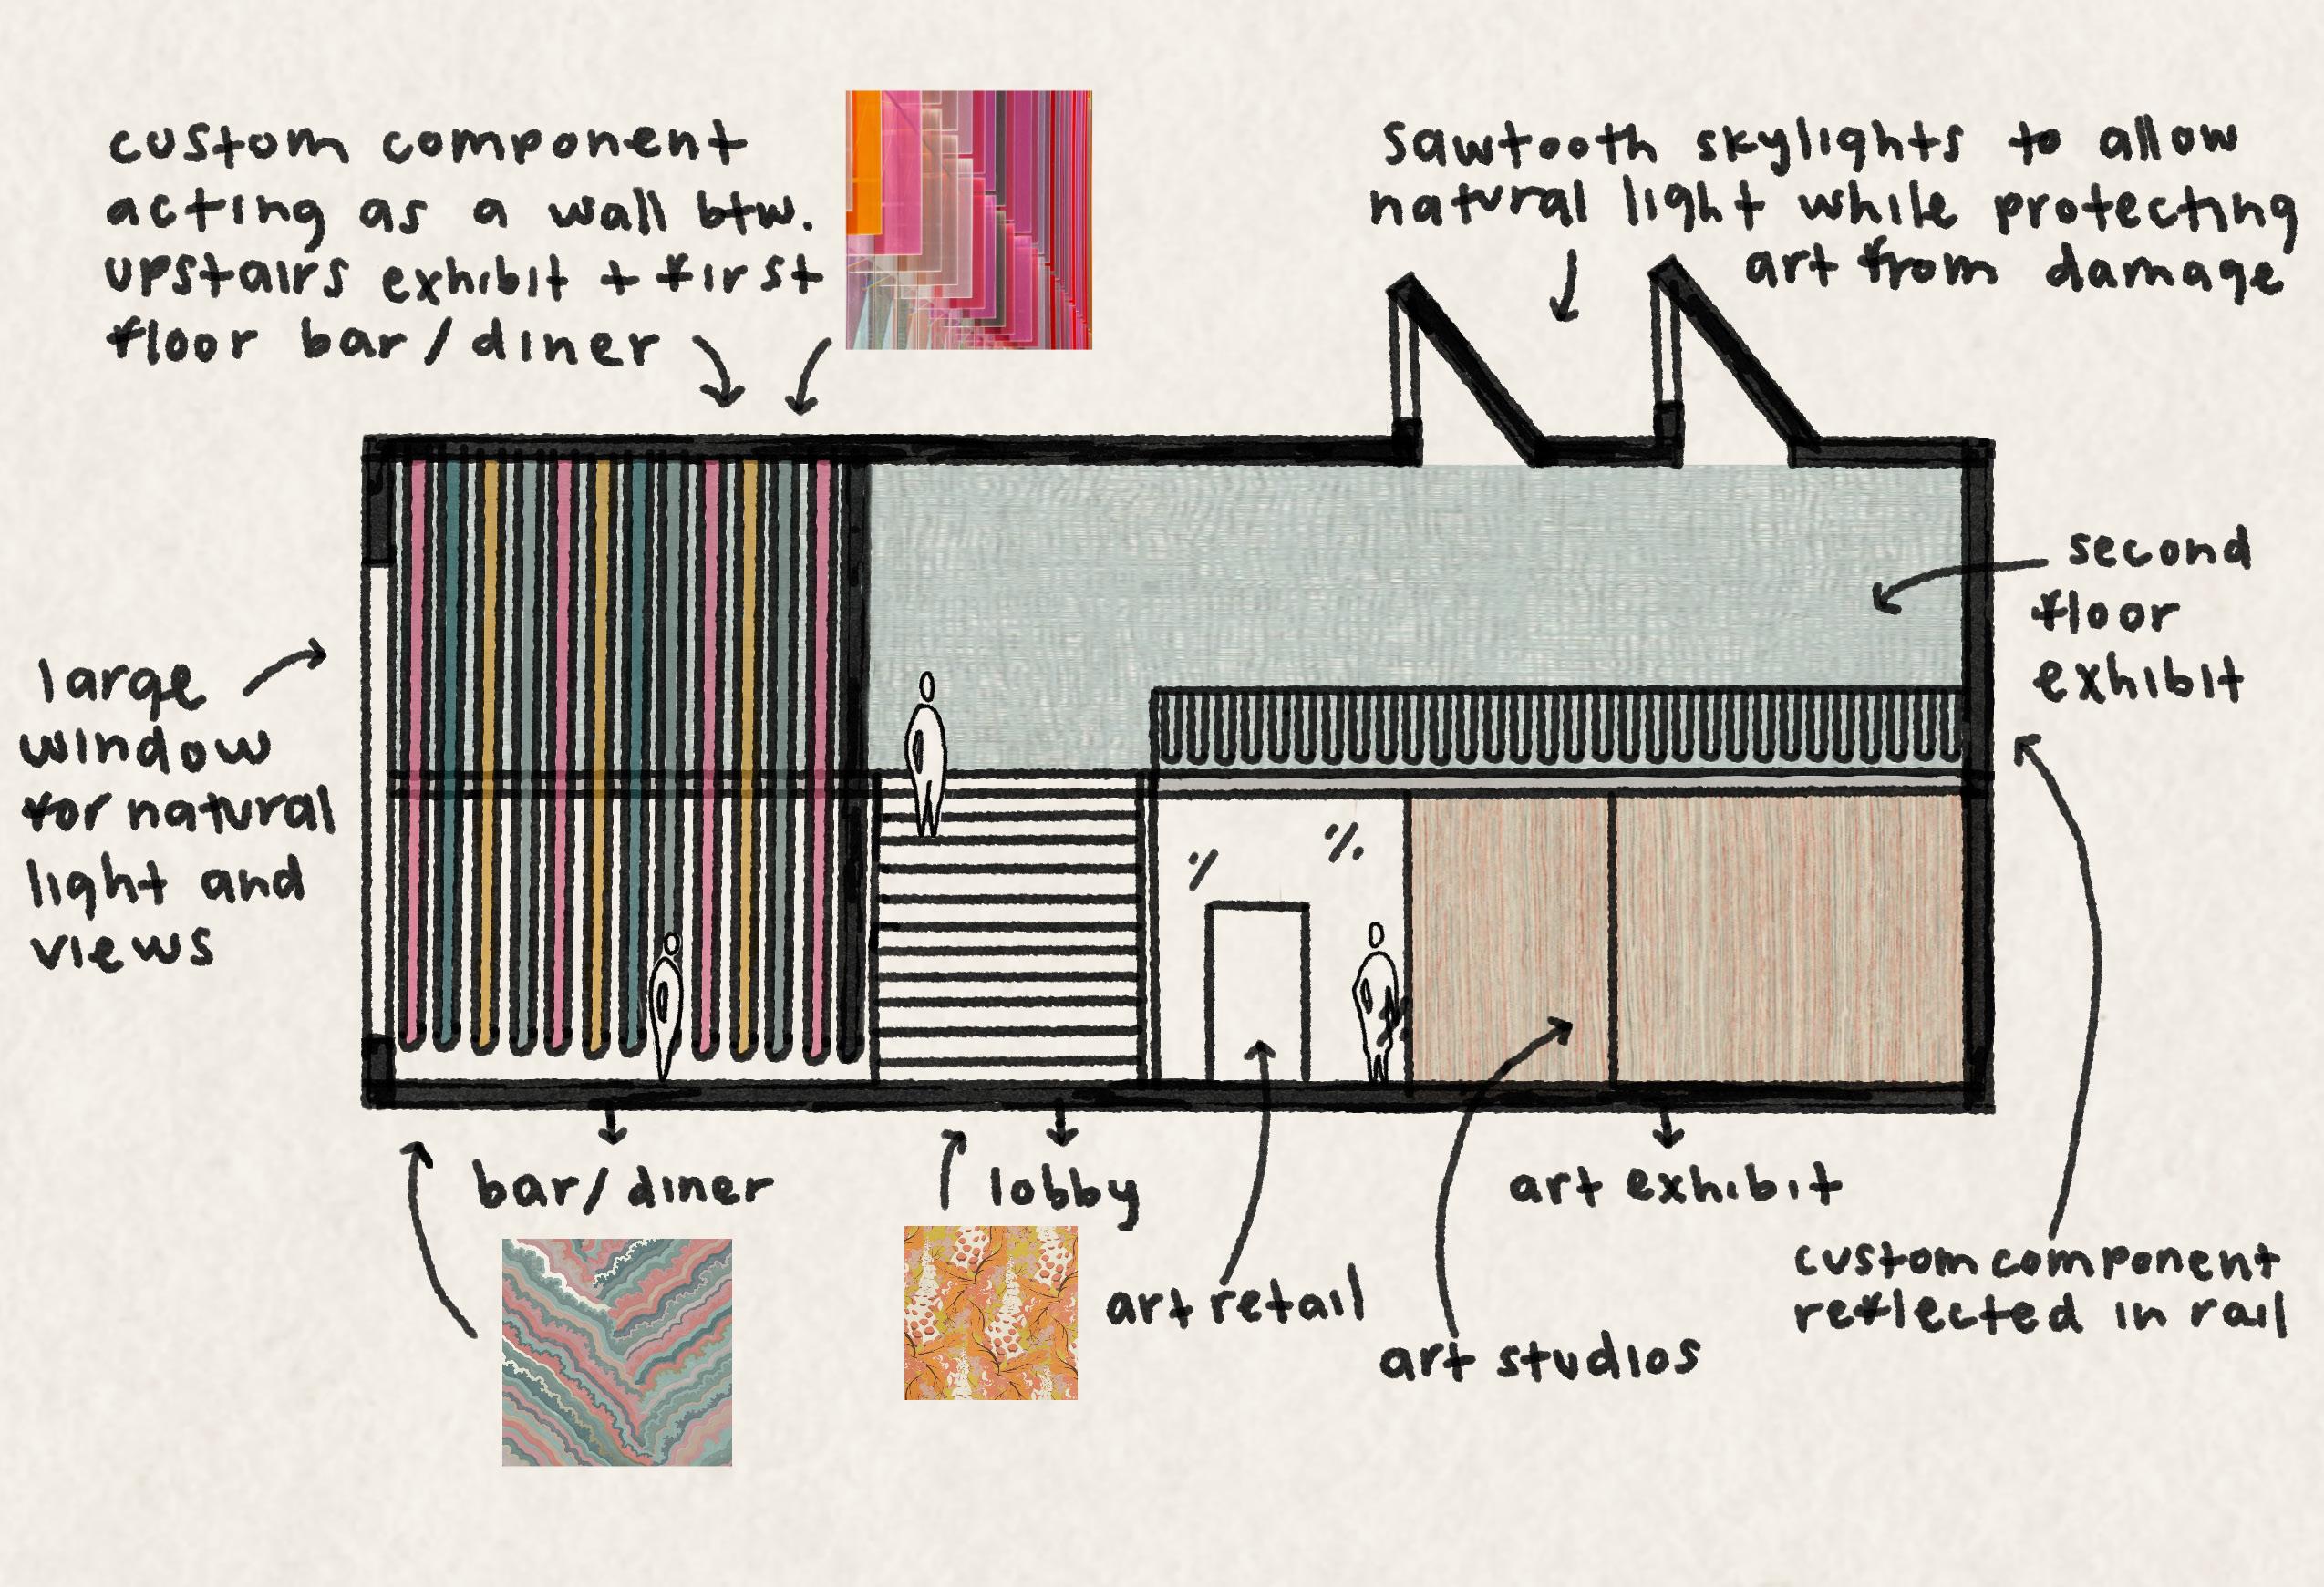 custom component
acting as a wall btw.
upstairs exhibit + first
floor bar/diner
sawtooth skylights to allow
natural light while protecting
art from damage
second
floor
exhibit
large
window
for natural
light and
views
bar/diner
lobby
art exhibit
art retail
art studios
custom component
reflected in rail